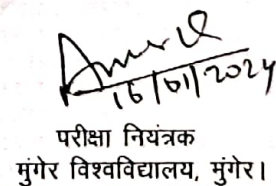 16/01/2024
परीक्षा नियंत्रक
मुंगेर विश्वविद्यालय, मुंगेर।